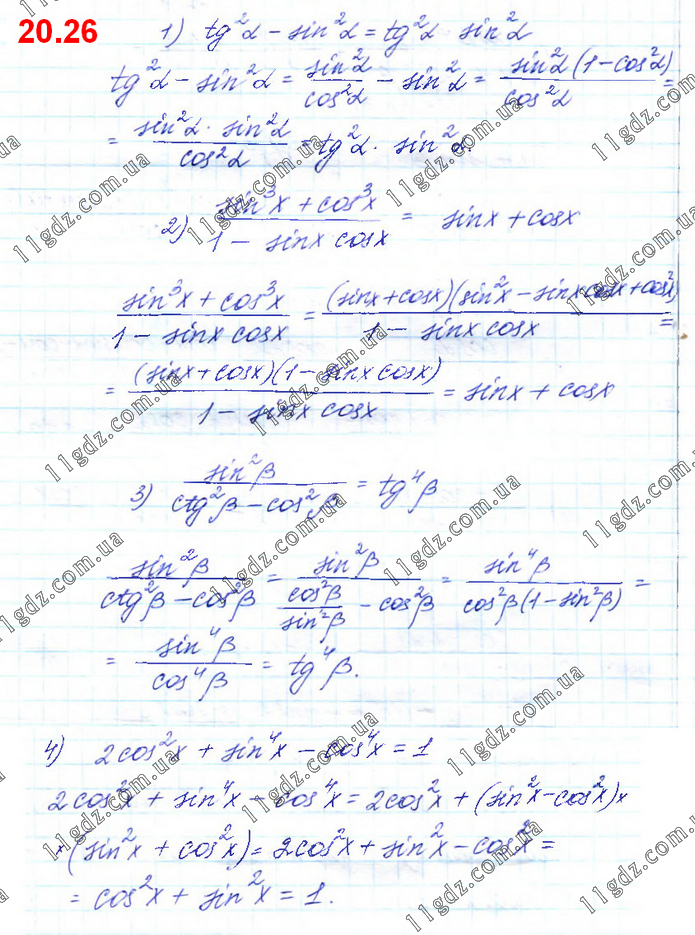 20.26
1) tg²α − sin²α = tg²α sin²α
tg²α − sin²α = sin²α/cos²α − sin²α = sin²α(1 − cos²α)/cos²α =
= sin²α · sin²α/cos²α = tg²α · sin²α.
2) (sin³x + cos³x)/(1 − sinx cosx) = sinx + cosx
(sin³x + cos³x)/(1 − sinx cosx) = (sinx + cosx)(sin²x − sinx cosx + cos²x)/(1 − sinx cosx) =
= (sinx + cosx)(1 − sinx cosx)/(1 − sinx cosx) = sinx + cosx
3) sin²β/(ctg²β − cos²β) = tg⁴β
sin²β/(ctg²β − cos²β) = sin²β/(cos²β/sin²β − cos²β) = sin⁴β/(cos²β(1 − sin²β)) =
= sin⁴β/cos⁴β = tg⁴β.
4) 2cos²x + sin⁴x − cos⁴x = 1
2cos²x + sin⁴x − cos⁴x = 2cos²x + (sin²x − cos²x) ×
× (sin²x + cos²x) = 2cos²x + sin²x − cos²x =
= cos²x + sin²x = 1.
11gdz.com.ua